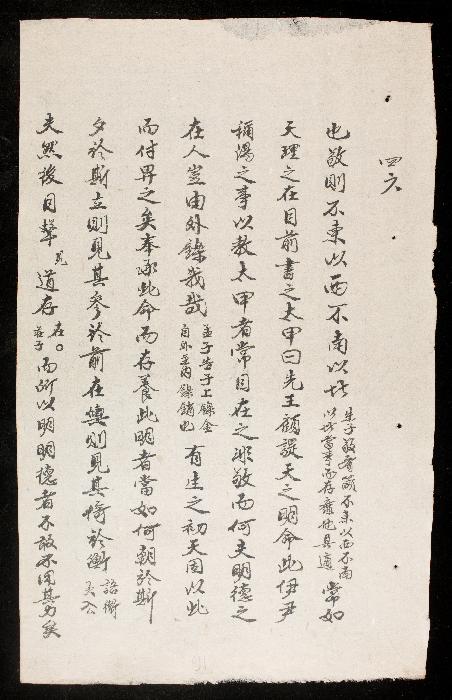 四六
也敬則不東以西不南以北朱子敬齋箴不東以西不南以北當事而存靡他其適常如
天理之在目前書之太甲曰先王顧諟天之明命此伊尹
稱湯之事以敎太甲者常目在之非敬而何夫明德之
在人豈由外鑠我哉孟子告子上鑠金自外至內鑠銷也有生之初天固以此
而付畀之矣奉承此命而存養此明者當如何朝於斯
夕於斯立則見其參於前在輿則見其倚於衡語衛灵公
夫然後目擊道存莊子在。而所以明明德者不敢不用其力矣